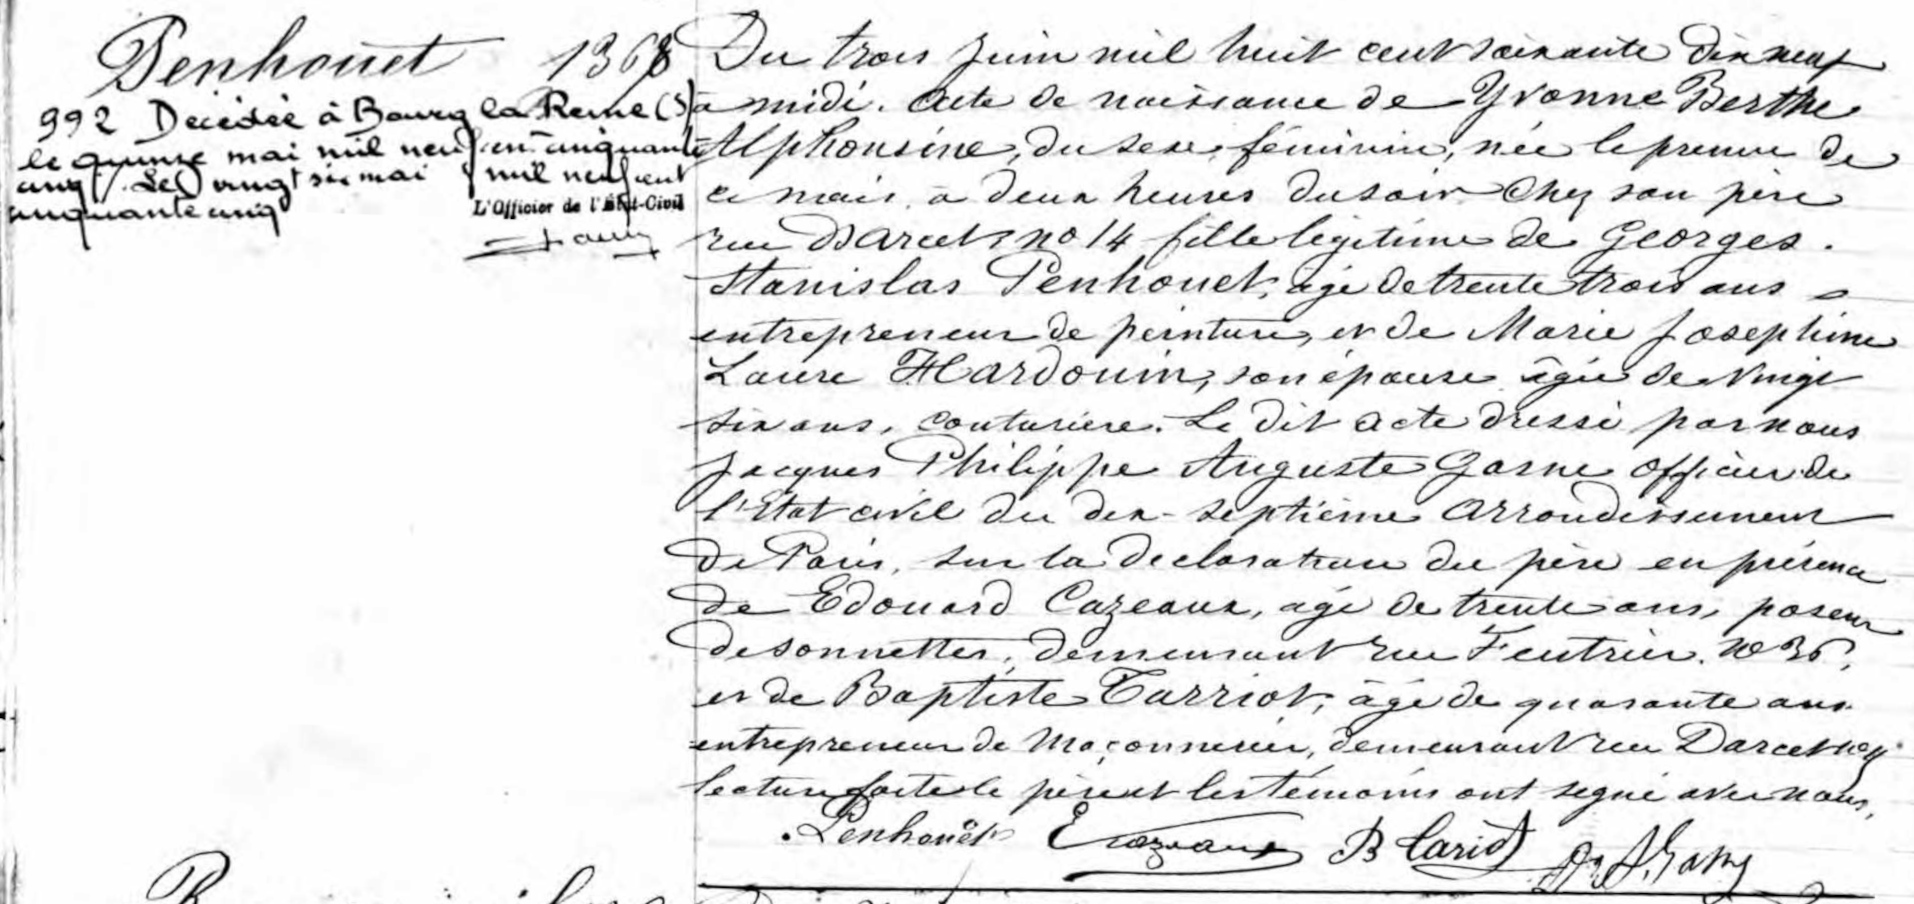 Penhouet 1368
992 Décédée à Bourg la Reine (S)
le quinze mai mil neuf cent cinquante
cinq. Le vingt six mai mil neuf cent
cinquante cinq
L'Officier de l'État-Civil
Du trois Juin mil huit cent soixante dix neuf
à midi. Acte de naissance de Yvonne Berthe
Alphonsine, du sexe féminin, née le premier de
ce mois, à deux heures du soir chez son père
rue Darcet no 14 fille légitime de Georges
Stanislas Penhouet, âgé de trente trois ans
entrepreneur de peinture, et de Marie Josephine
Laure Hardouin, son épouse âgée de vingt
six ans, couturière. Le dit acte dressé par nous
Jacques Philippe Auguste Gasne officier de
l'Etat civil du dix-septième arrondissement
de Paris, sur la déclaration du père en présence
de Edouard Cazeaux, âgé de trente ans, poseur
de sonnettes, demeurant rue Feutrier no 36,
et de Baptiste Tarriot, âgé de quarante ans
entrepreneur de maçonnerie, demeurant rue Darcet
lecture faite le père et les témoins ont signé avec nous.
Penhouët E Cazeaux B Tariot